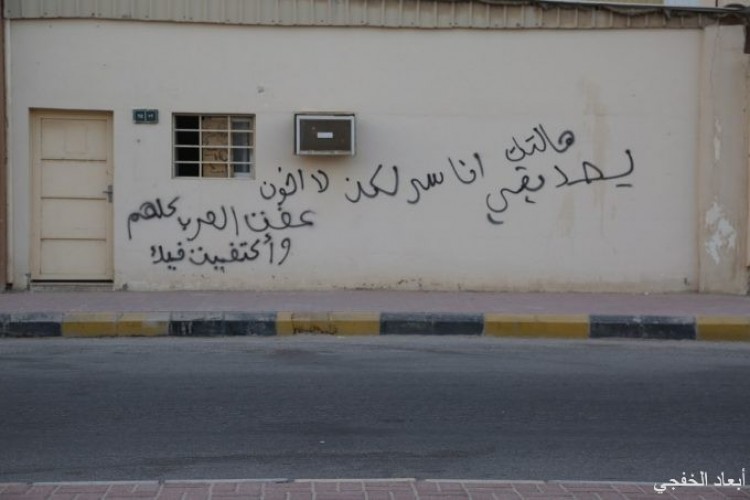 هالتك
يصديقي
انا سر لكن لا اخون
عفت العرب كلهم
وأكتفيت فيك
أبعاد الخفجي